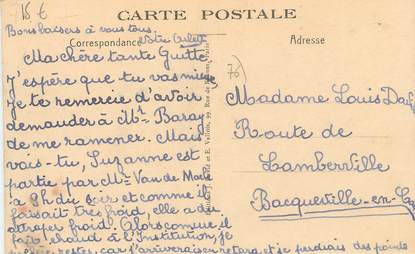 15 €
CARTE POSTALE
Bons baisers à vous tous.
Correspondance
Adresse
Ma chère tante Guitte
J'espère que tu vas mieux
Je te remercie d'avoir
demander à Mr Baray
de me ramener. Mais
vois-tu, Suzanne est
partie par Mr Van de Male
à 8h du soir et comme il
faisait très froid, elle a dû
attraper froid. Alors comme, il
fait chaud à l'Institution, je
rester, car j'arriverais retard et je perdrais des points
(76)
Madame Louis
Route de
Lamberville
Bacqueville-en-